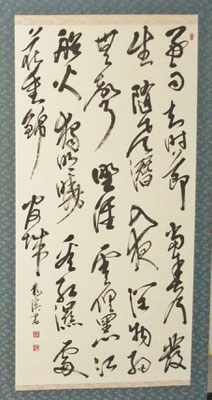 好雨知時節當春乃發
生隨風潛入夜潤物細
無聲野徑雲俱黑江
船火獨明曉看紅濕處
花重錦官城